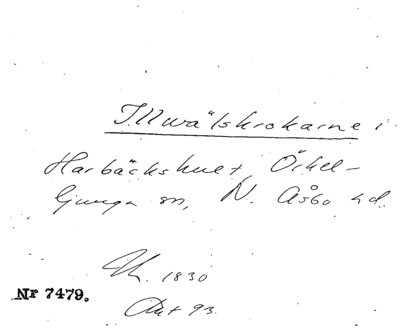 Illwålskrokarne i
Harbäckshult, Örkel-
ljunga sn, N. Åsbo hd.
1830
Nr 7479.
Akt 93.